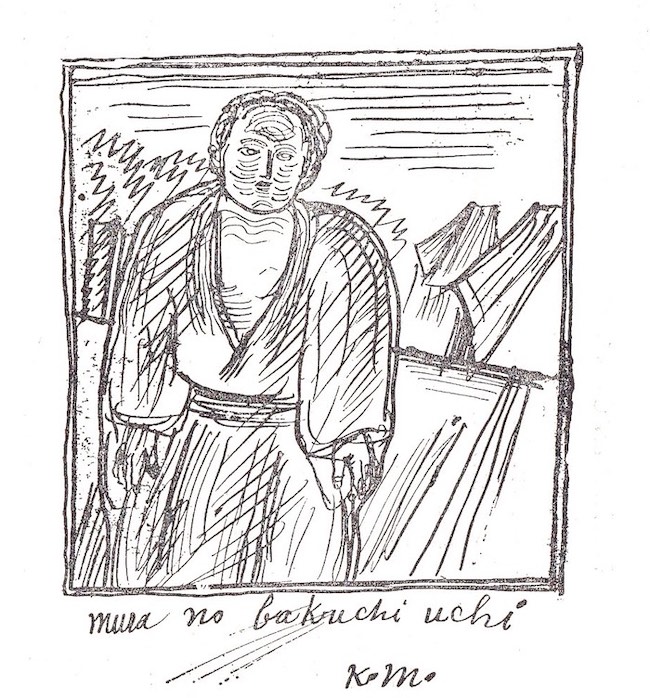 mura no bakuchi uchi
K.M.